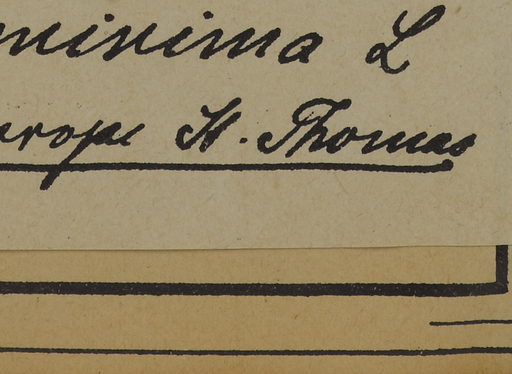 minima L
urope St. Thomas